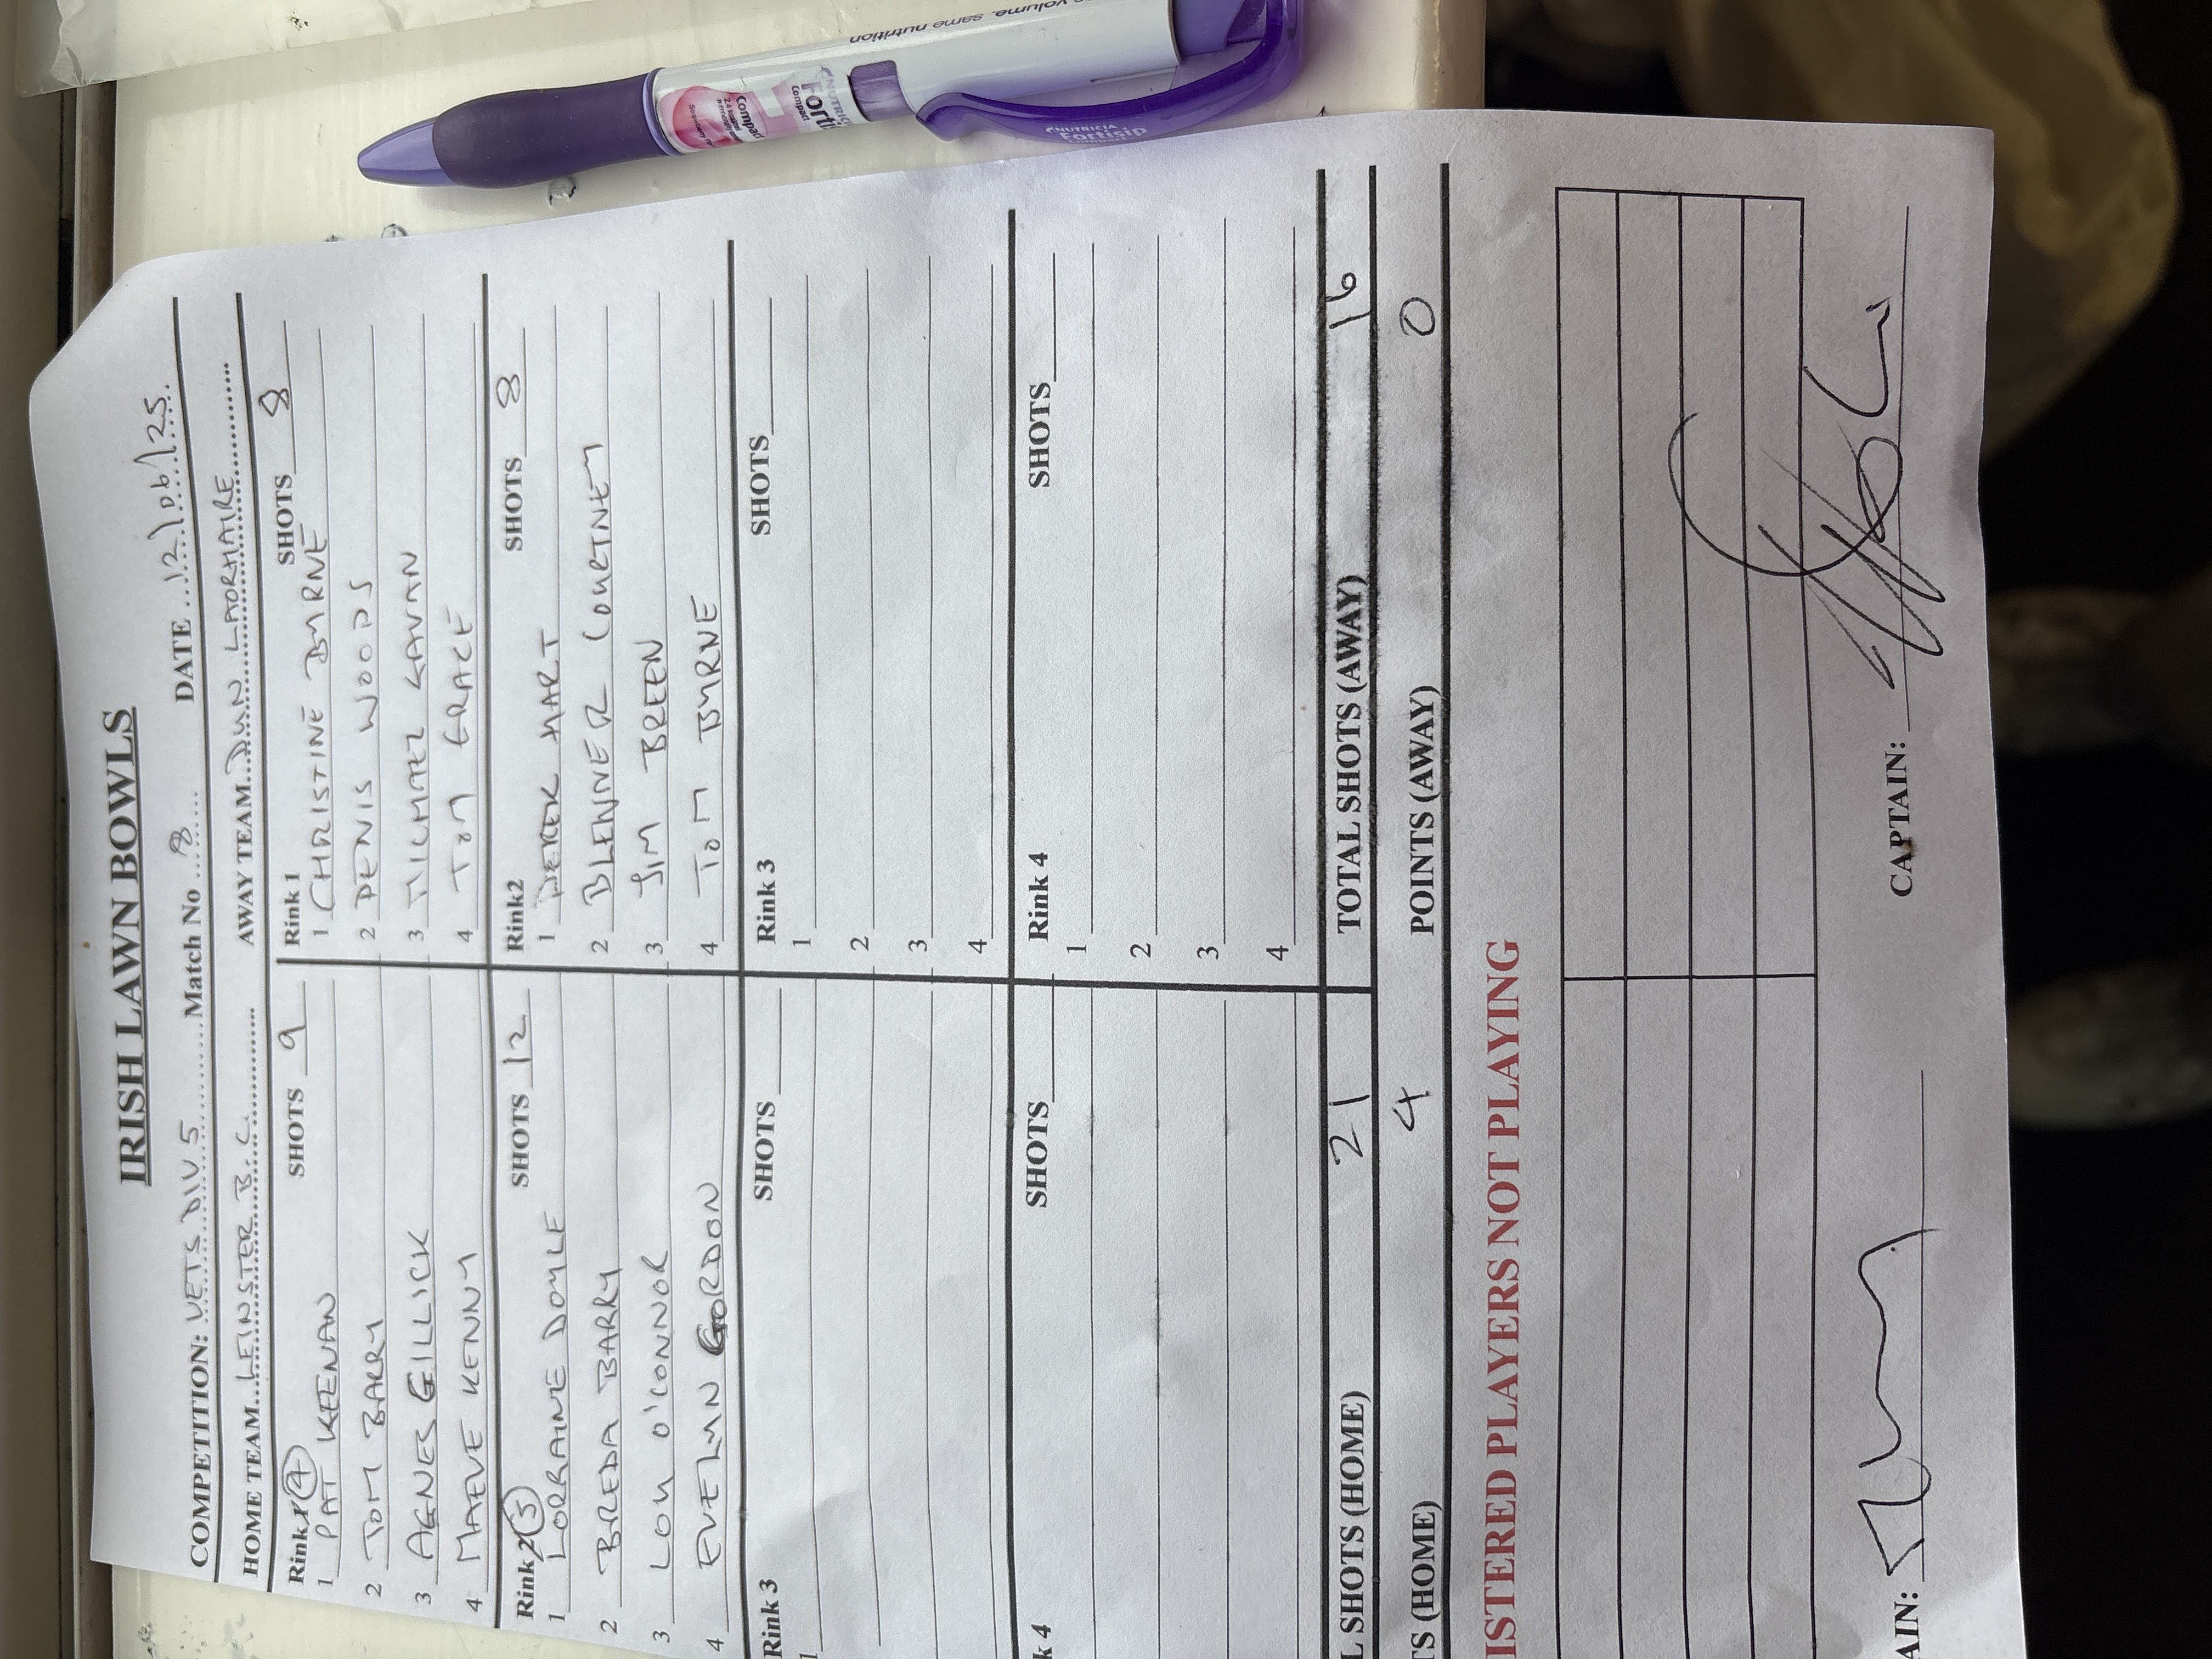 IRISH LAWN BOWLS
COMPETITION: VETS DIV 5 Match No 8 DATE 12/06/25
HOME TEAM LEINSTER B.C. AWAY TEAM DUN LAORHAIRE
Rink 1 (4) SHOTS 9 Rink 1 SHOTS 8
1 PAT KEENAN 1 CHRISTINE BYRNE
2 TOM BARRY 2 DENIS WOODS
3 AGNES GILLICK 3 MICHAEL GAVAN
4 MAEVE KENNY 4 TOM GRACE
Rink 2 (5) SHOTS 12 Rink2 SHOTS 8
1 LORRAINE DOYLE 1 DEREK HART
2 BREDA BARRY 2 BLENNER COURTNEY
3 LOU O'CONNOR 3 JIM BREEN
4 EVELYN GORDON 4 TOM BYRNE
Rink 3 SHOTS Rink 3 SHOTS
1 1
2
3
4
k 4 SHOTS Rink 4 SHOTS
1
2
3
4
L SHOTS (HOME) 21 TOTAL SHOTS (AWAY) 16
TS (HOME) 4 POINTS (AWAY) 0
ISTERED PLAYERS NOT PLAYING
AIN: CAPTAIN:
volume, same nutrition
NUTRICIA
Forti
Compact
Compact
NUTRICIA
Fortisip